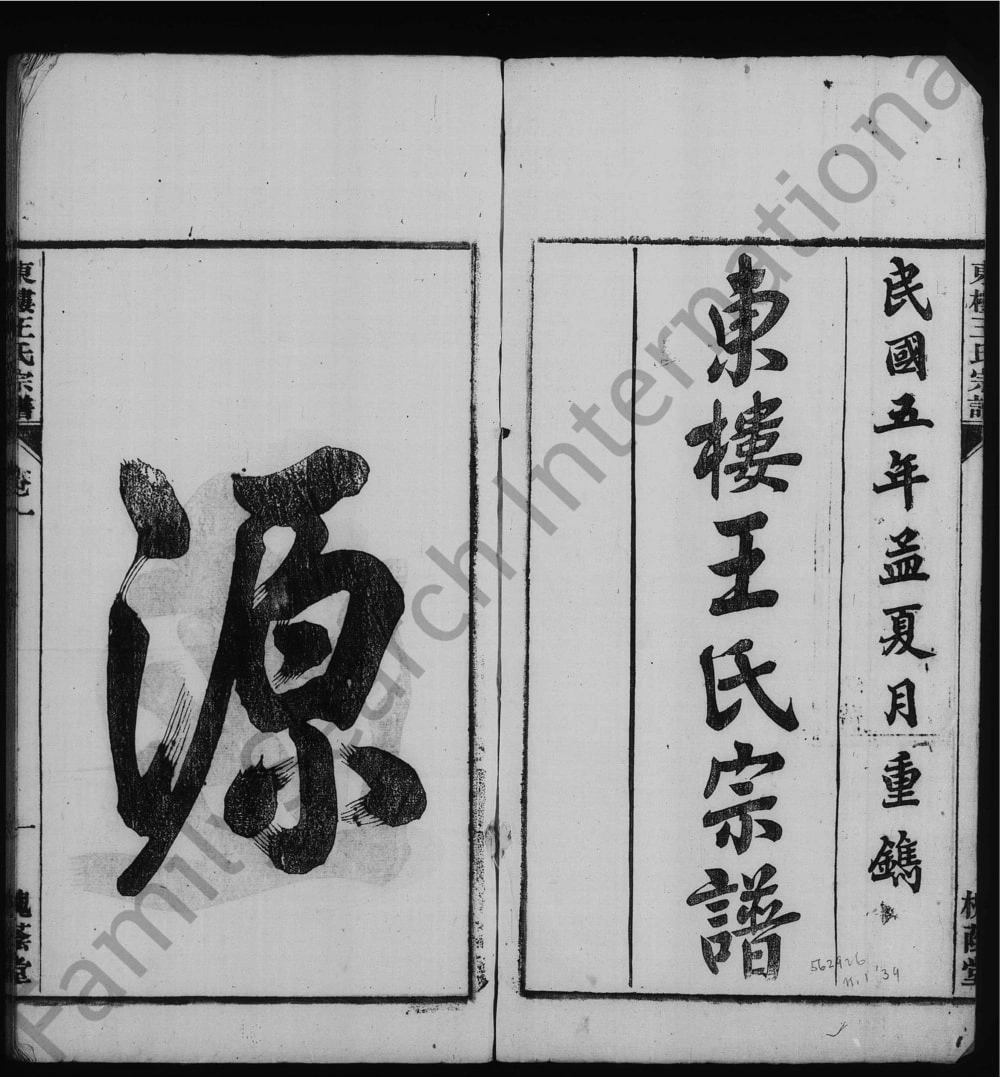 東樓王氏宗譜
槐蔭堂
民國五年孟夏月重鐫
東樓王氏宗譜
562926
11.1.'34
源
東樓王氏宗譜
卷一
一
槐蔭堂
FamilySearch International